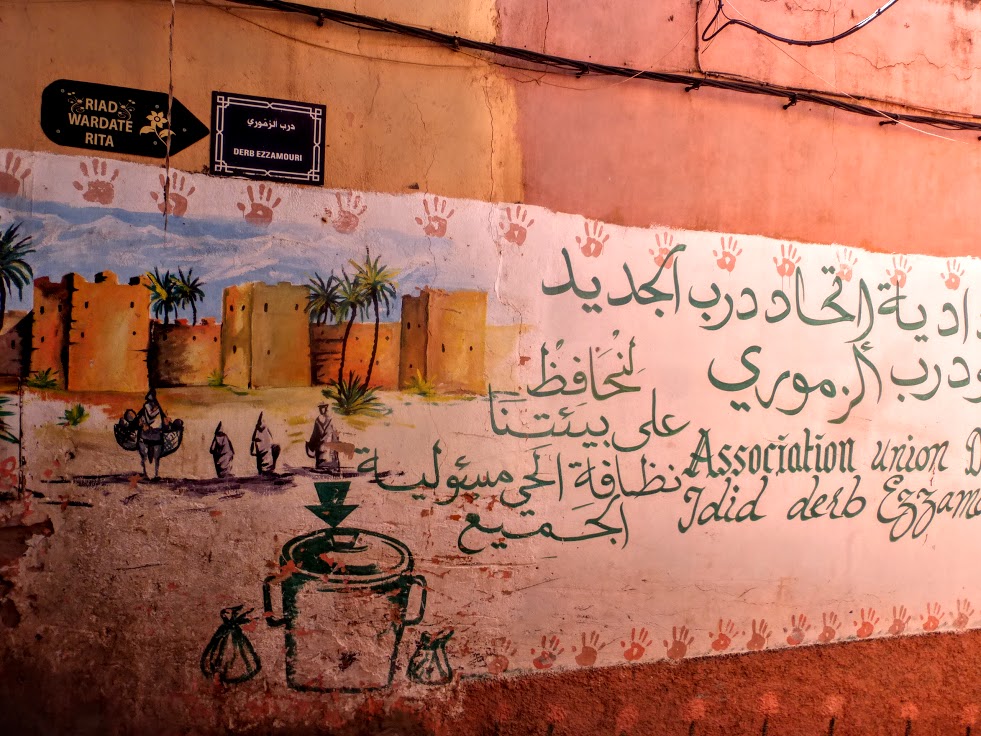 RIAD
WARDATE
RITA
درب الزموري
DERB EZZAMOURI
اتحاد درب الجديد
ودرب الزموري
لنْحَافِظْ
على بيئتنَا
نظافة الحي مسؤولية
الجميع
Association union
Jdid derb